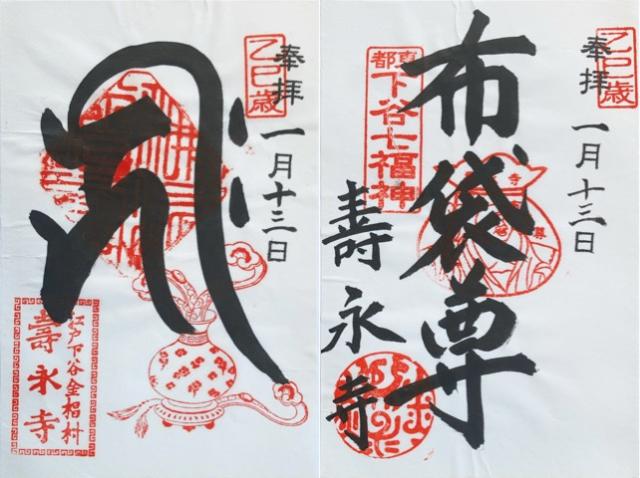 乙巳歳
奉拝
一月十三日
江戸下谷金椙村
壽永寺
乙巳歳
奉拝
一月十三日
布袋尊
東都
下谷七福神
壽永寺